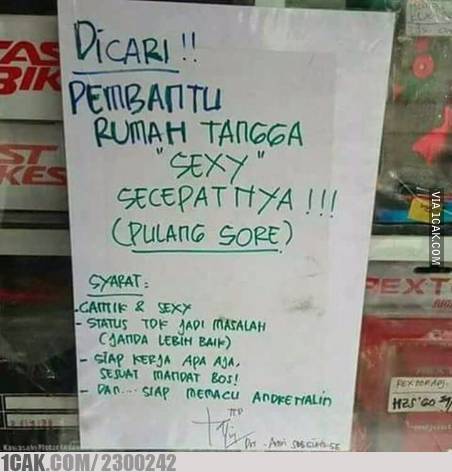 DICARI !!
PEMBANTU
RUMAH TANGGA
"SEXY"
SECEPATNYA !!!
(PULANG SORE)
SYARAT:
- CANTIK & SEXY
- STATUS TDK JADI MASALAH
(JANDA LEBIH BAIK)
- SIAP KERJA APA AJA,
SESUAI MANDAT BOS!
- DAN... SIAP MEMACU ANDRENALIN
TTD
VIA 1CAK.COM
1CAK.COM/2300242